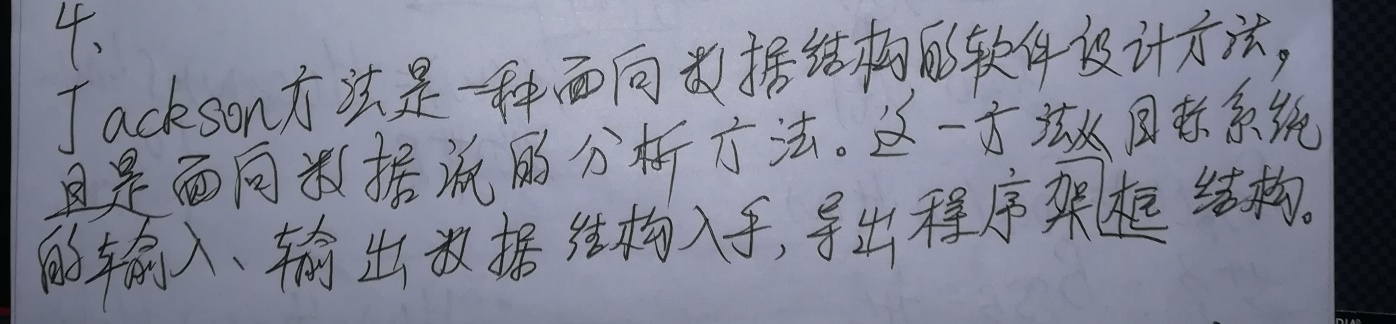 4、
Jackson方法是一种面向数据结构的软件设计方法,
且是面向数据流的分析方法。这一方法从目标系统
的输入、输出数据结构入手,导出程序架框结构。